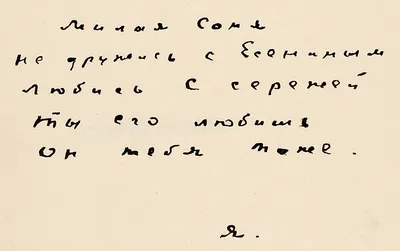 Милая Соня
не дружись с Есениным
любись с сережей
ты его любишь
он тебя тоже.
Я.